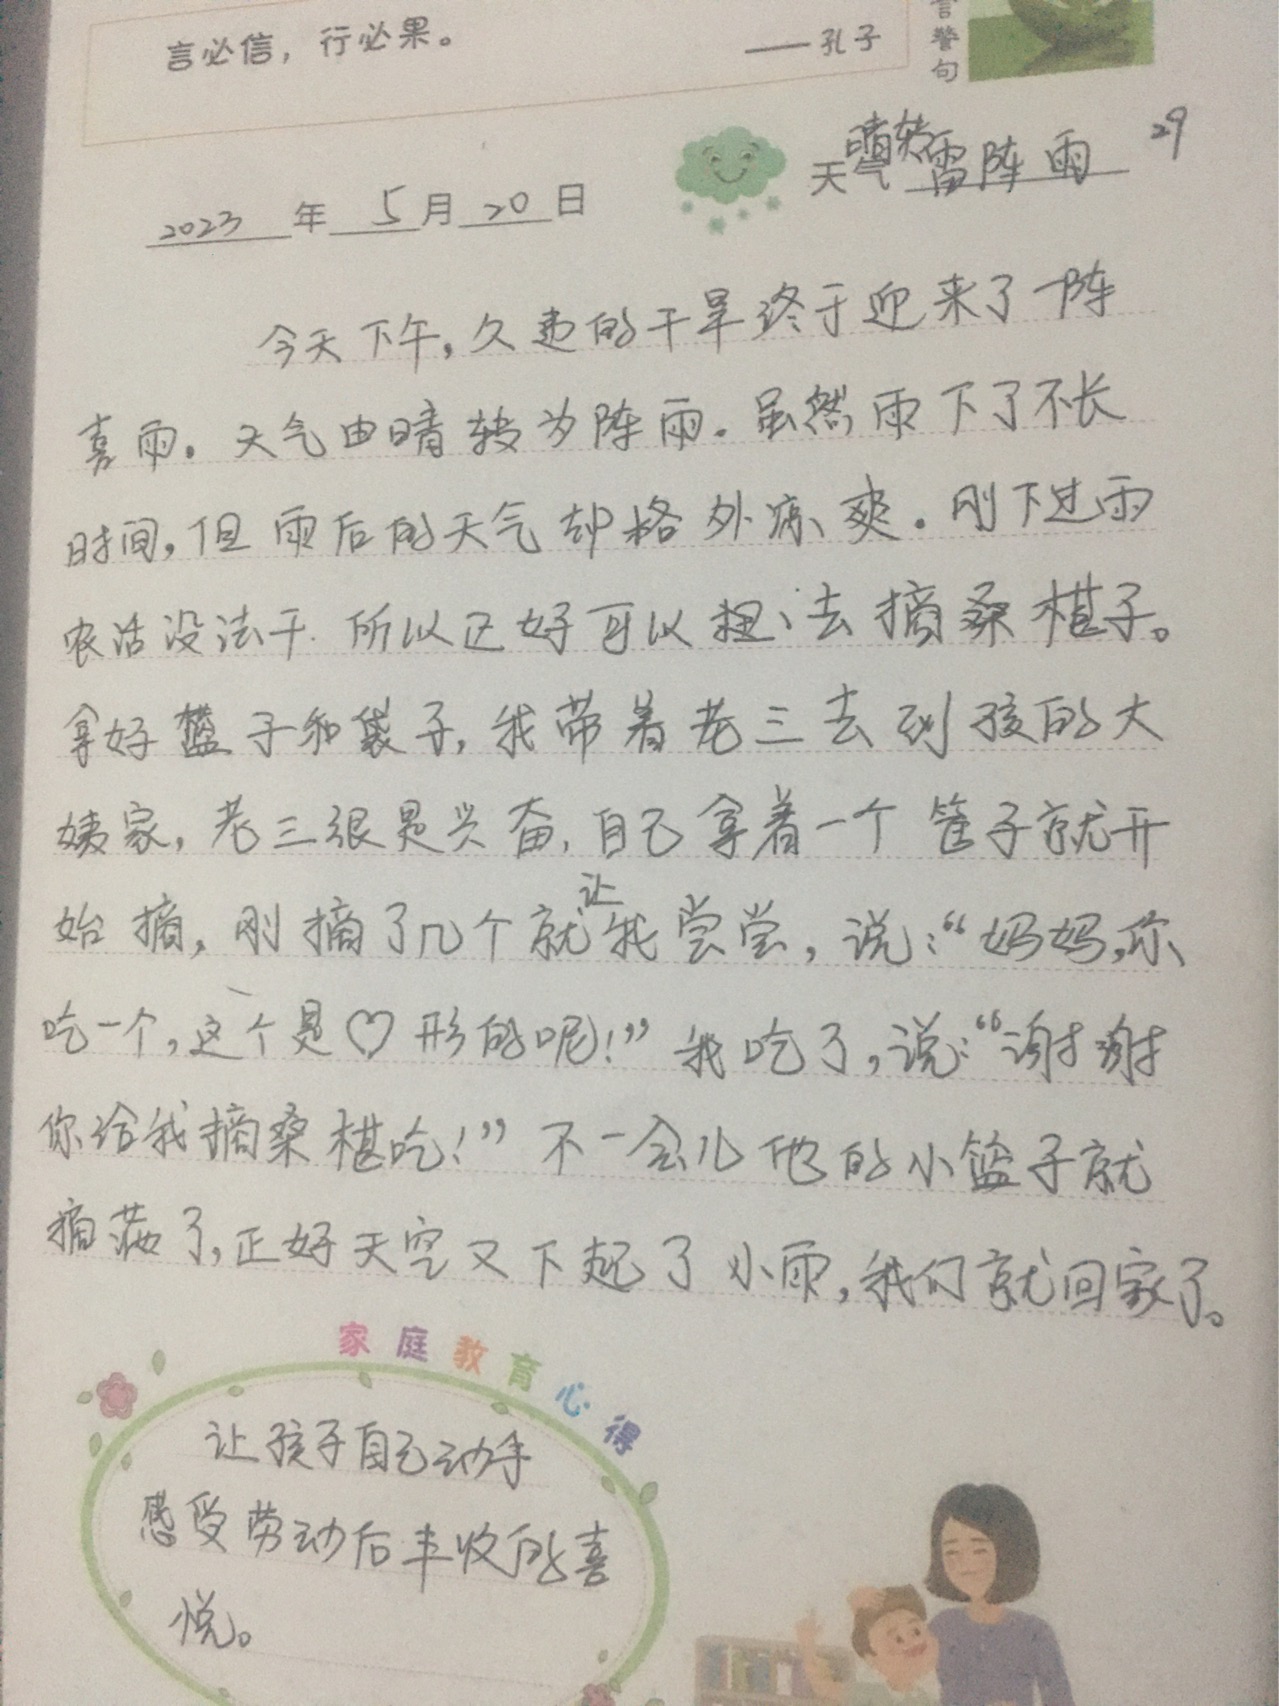 言必信，行必果。
——孔子
言警句
2023年5月20日
天气 晴转雷阵雨
29
今天下午，久违的干旱终于迎来了一阵
喜雨。天气由晴转为阵雨。虽然雨下了不长
时间，但雨后的天气却格外凉爽。刚下过雨
农活没法干.所以正好可以去摘桑椹子。
拿好篮子和袋子，我带着老三去到孩的大
姨家，老三很是兴奋，自己拿着一个筐子就开
始摘，刚摘了几个就让我尝尝，说：“妈妈，你
吃一个，这个是♡形的呢！”我吃了，说：“谢谢
你给我摘桑椹吃！”不一会儿他的小篮子就
摘满了，正好天空又下起了小雨，我们就回家了。
家庭教育心得
让孩子自己动手
感受劳动后丰收的喜
悦。